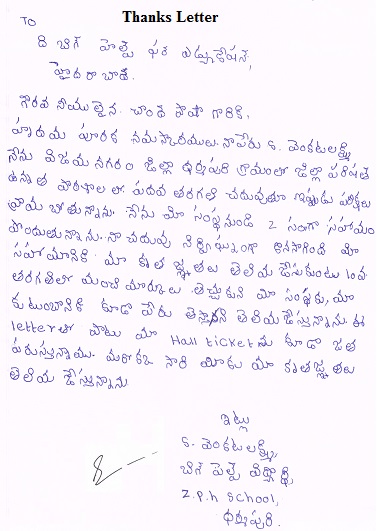 Thanks Letter
TO
ది బిగ్ హెల్ప్ ఫర్ ఎడ్యుకేషన్,
హైదరాబాద్.
గౌరవనీయులైన చాంద్ పాషా గారికి,
హృదయ పూర్వక నమస్కారములు. నాపేరు S. వెంకటలక్ష్మి
నేను విజయనగరం జిల్లా ధర్మపురి గ్రామంలో జిల్లా పరిషత్
ఉన్నత పాఠశాలలో పదవ తరగతి చదువుతూ ఇప్పుడు పరీక్షలు
వ్రాయబోతున్నాను. నేను మీ సంస్థనుండి 2 సం॥గా సహాయం
పొందుతున్నాను. నా చదువు నిర్విఘ్నంగా కొనసాగింది మీ
సహాయానికి మా కృతజ్ఞతలు తెలియజేసుకుంటు 10వ
తరగతిలో మంచి మార్కులు తెచ్చుకుని మీ సంస్థకు, మా
కుటుంబానికి కూడా పేరు తెస్తానని తెలియజేస్తున్నాను. ఈ
letterతో పాటు మా Hall ticketను కూడా జత
పరుస్తున్నాము. మరొకసారి మీకు మా కృతజ్ఞతలు
తెలియజేస్తున్నాను
ఇట్లు
S. వెంకటలక్ష్మి,
బిగ్ హెల్ప్ విద్యార్థి,
Z.P.H School,
ధర్మపురి.